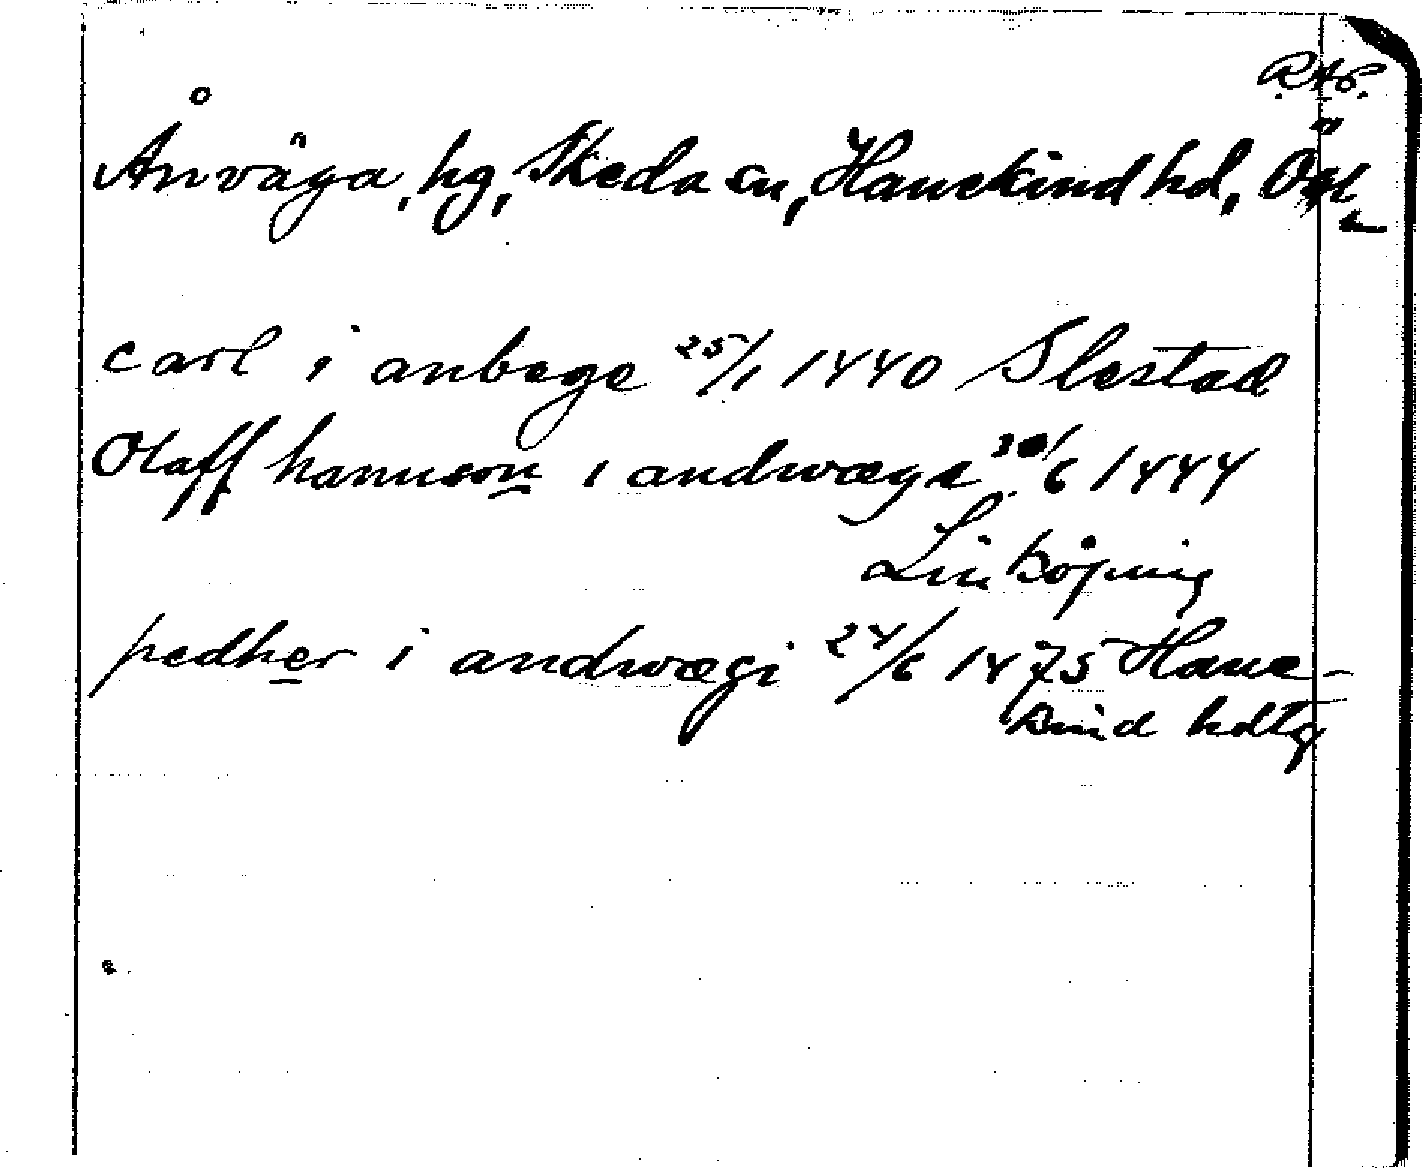 RAP.
Ånväga, hg, Skeda sn, Hanekind hd, Ög
carl i anbege 25/1 1440 Slestad
Olaff hanuson i andwægi 30/6 1444
Linköping
pedher i andwægi 24/6 1475 Hane-
kind hdtg